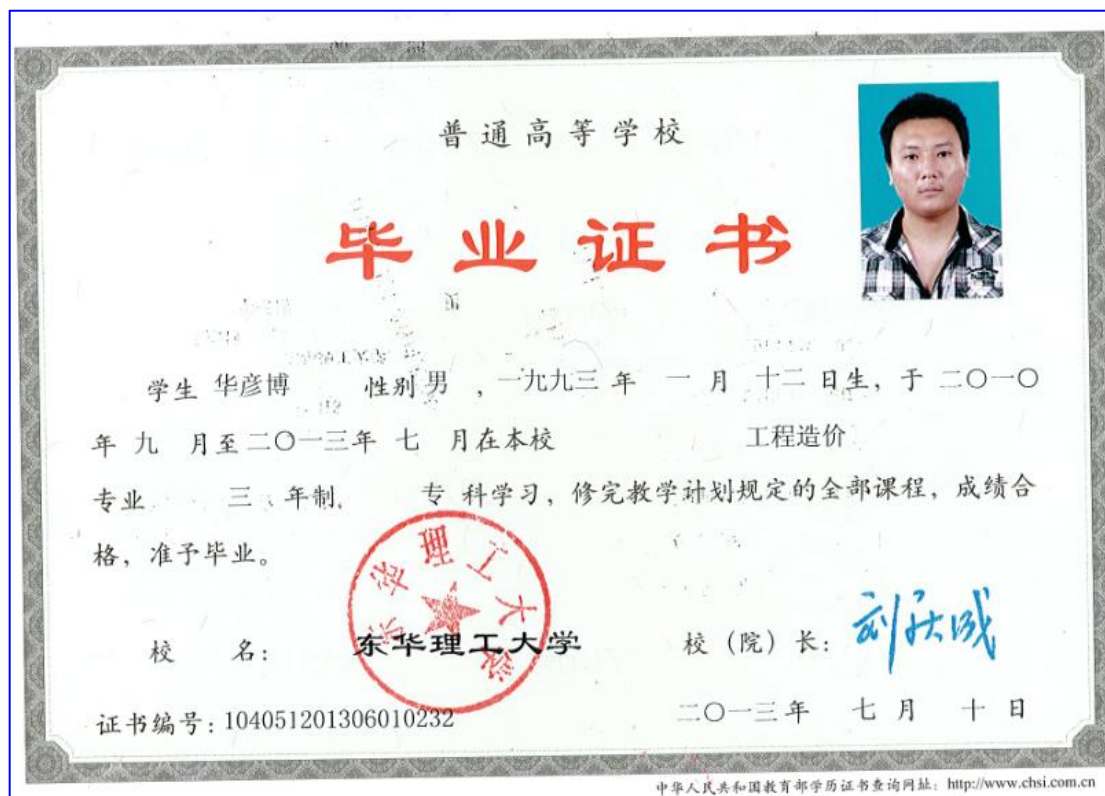 普通高等学校
毕业证书
学生 华彦博 性别 男 , 一九九三 年 一 月 十二 日生, 于 二〇一〇
年 九 月至 二〇一三年 七 月在本校 工程造价
专业 三 年制, 专 科学习, 修完教学计划规定的全部课程, 成绩合
格, 准予毕业。
东华理工大学
校 名: 东华理工大学 校(院)长:
证书编号: 104051201306010232 二〇一三年 七月 十日
中华人民共和国教育部学历证书查询网址: http://www.chsi.com.cn